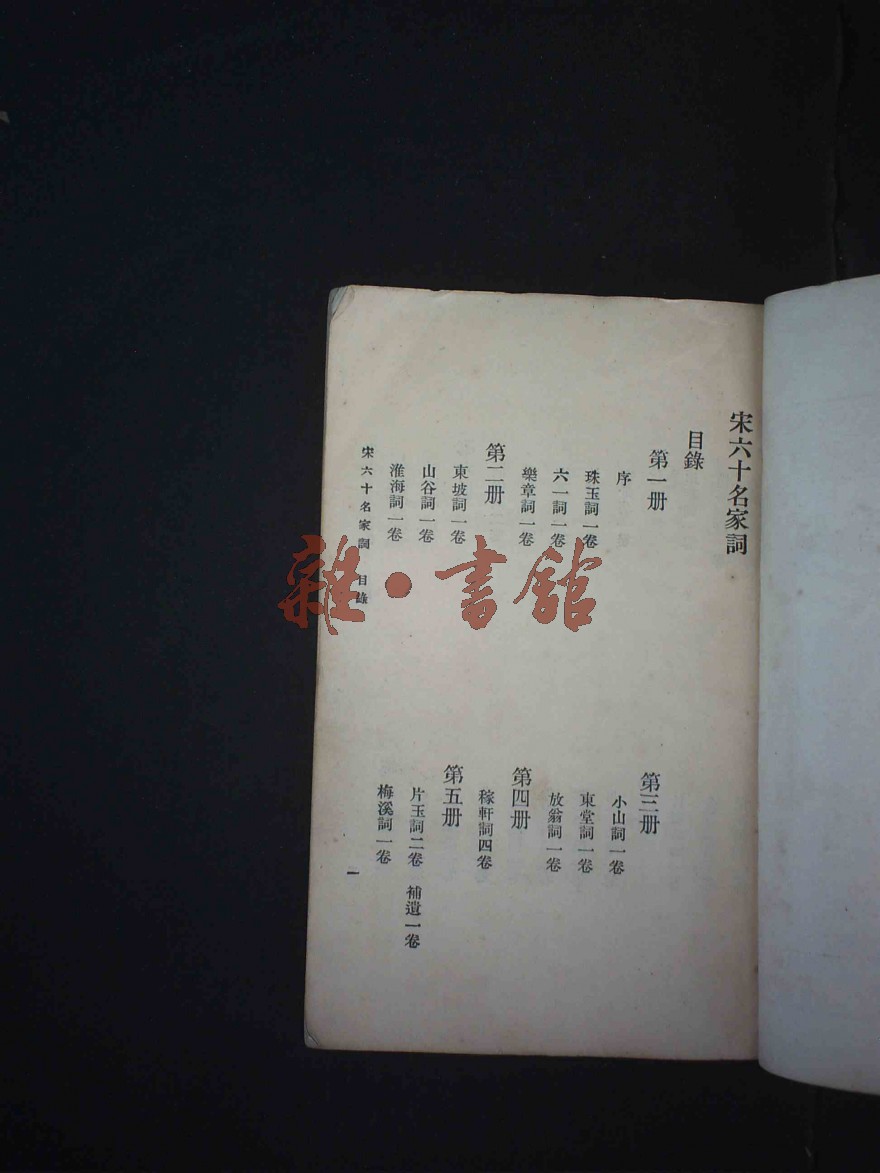 宋六十名家詞
目錄
第一册
序
珠玉詞一卷
六一詞一卷
樂章詞一卷
第二册
東坡詞一卷
山谷詞一卷
淮海詞一卷
第三册
小山詞一卷
東堂詞一卷
放翁詞一卷
第四册
稼軒詞四卷
第五册
片玉詞二卷 補遺一卷
梅溪詞一卷
宋六十名家詞 目錄
一
雜·書館